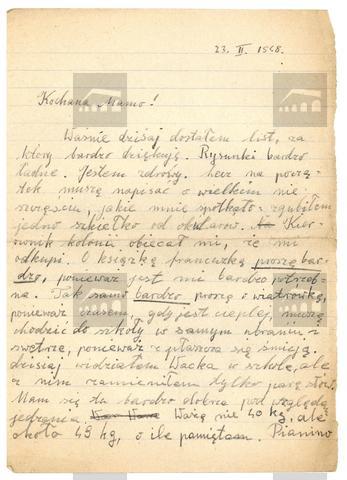 23. II. 1948.
Kochana Mamo!
Waśnie dzisiaj dostałem list, za
który bardzo dziękuję. Rysunki bardzo
ładne. Jestem zdrowy. Lecz na począ-
tek muszę napisać o wielkim nie-
szczęściu, jakie mnie spotkało-zgubiłem
jedno szkiełko od okularów. Kier-
ownik kolonii obiecał mi, że mi
odkupi. O książkę francuzką proszę bar-
dzo, ponieważ jest mi bardzo potrzeb-
na. Tak samo bardzo proszę o wiatrówkę,
ponieważ czasem, gdy jest cieplej, muszę
chodzić do szkoły w samym ubraniu i
swetrze, ponieważ z płaszcza się śmieją.
Dzisiaj widziałem Wacka w szkole, ale
z nim zamieniłem tylko parę słów.
Mam się tu bardzo dobrze pod względem
jedzenia. Ważę nie 40 kg, ale
około 49 kg, o ile pamiętam. Pianino